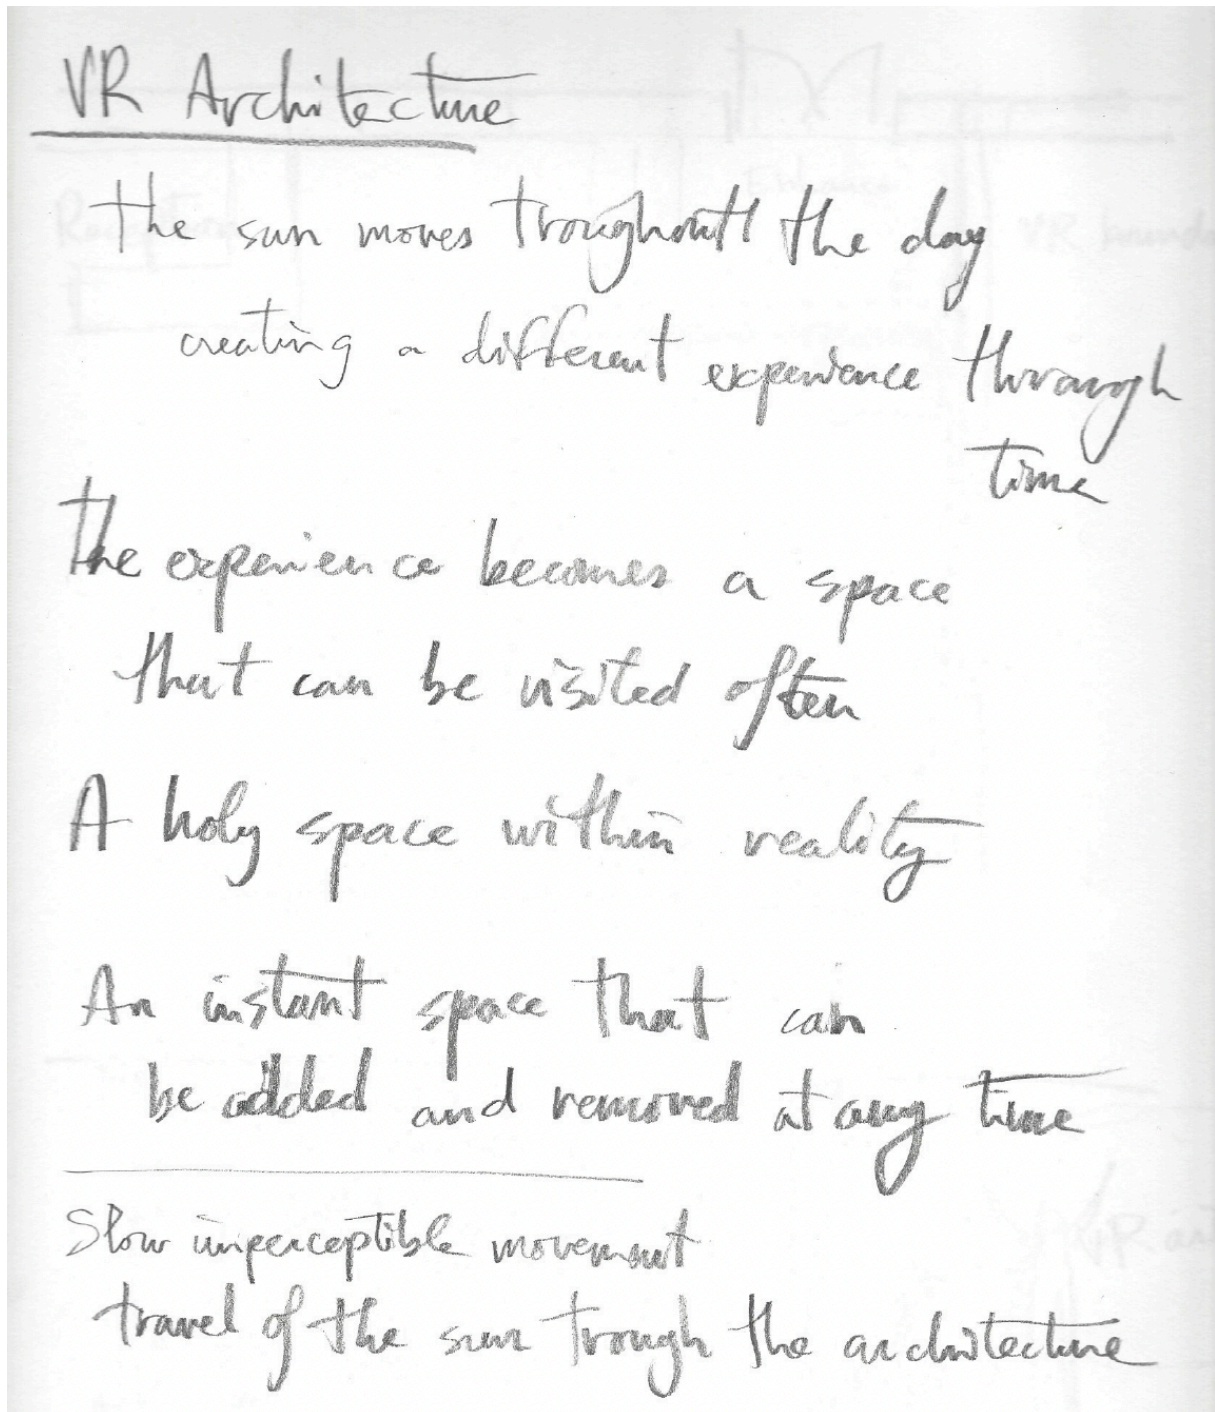 VR Architecture
the sun moves troughoutt the day
creating a different experience through
time
The experience becomes a space
that can be visited often
A holy space within reality
An instant space that can
be added and removed at any time
Slow imperceptible movement
travel of the sun trough the architecture
Reception
Entrance
VR
VR